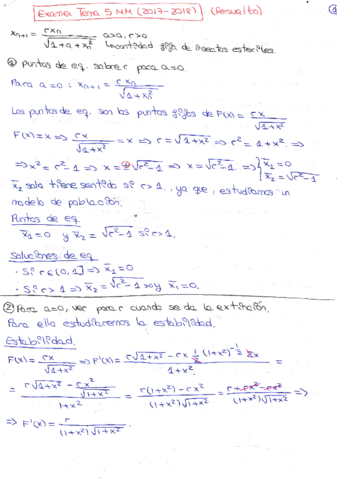 Examen Tema 5 MM (2017-2018) (Resuelto)
1
x_{n+1} = \frac{r x_n}{\sqrt{1+a+x_n^2}} a>0, r>0
Lo cantidad fija de insectos estériles.
① Puntos de eq. sobre r para a=0.
Para a=0: x_{n+1} = \frac{r x_n}{\sqrt{1+x_n^2}}
Los puntos de eq. son los puntos fijos de F(x) = \frac{rx}{\sqrt{1+x^2}}
F(x)=x ⇒ \frac{rx}{\sqrt{1+x^2}} = x ⇒ r = \sqrt{1+x^2} ⇒ r^2 = 1+x^2, ⇒
⇒ x^2 = r^2-1 ⇒ x = ⊕\sqrt{r^2-1} ⇒ x = \sqrt{r^2-1}. ⇒ { \bar{x}_1 = 0
\bar{x}_2 = \sqrt{r^2-1}
\bar{x}_2 solo tiene sentido si r>1, ya que, estudiamos un
modelo de población.
Puntos de eq
\bar{x}_1 = 0 y \bar{x}_2 = \sqrt{r^2-1} si r>1.
Soluciones de eq
· Si r∈(0,1] ⇒ \bar{x}_1 = 0
· Si r>1 ⇒ \bar{x}_2 = \sqrt{r^2-1} >0 y \bar{x}_1 = 0.
② Para a=0, ver para r cuando se da la extinción.
Para ello estudiaremos la estabilidad.
Estabilidad
F(x) = \frac{rx}{\sqrt{1+x^2}} ⇒ F'(x) = \frac{r\sqrt{1+x^2} - rx \frac{1}{2}(1+x^2)^{-\frac{1}{2}} 2x}{1+x^2} =
= \frac{r\sqrt{1+x^2} - \frac{rx^2}{\sqrt{1+x^2}}}{1+x^2} = \frac{r(1+x^2) - rx^2}{(1+x^2)\sqrt{1+x^2}} = \frac{r+rx^2-rx^2}{(1+x^2)\sqrt{1+x^2}} ⇒
⇒ F'(x) = \frac{r}{(1+x^2)\sqrt{1+x^2}}